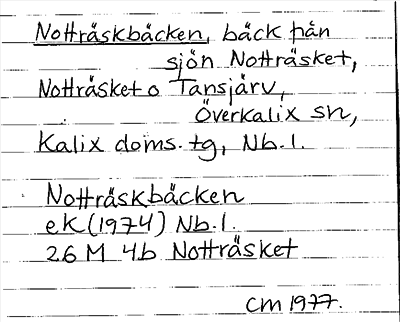 Nottråskbäcken, bäck från
sjön Nottråsket,
Nottråsket o Tansjärv,
Överkalix sn,
Kalix doms. tg, Nb. l.
Nottråskbäcken
ek (1974) Nb. l.
26 M 4b Nottråsket
CM 1977.